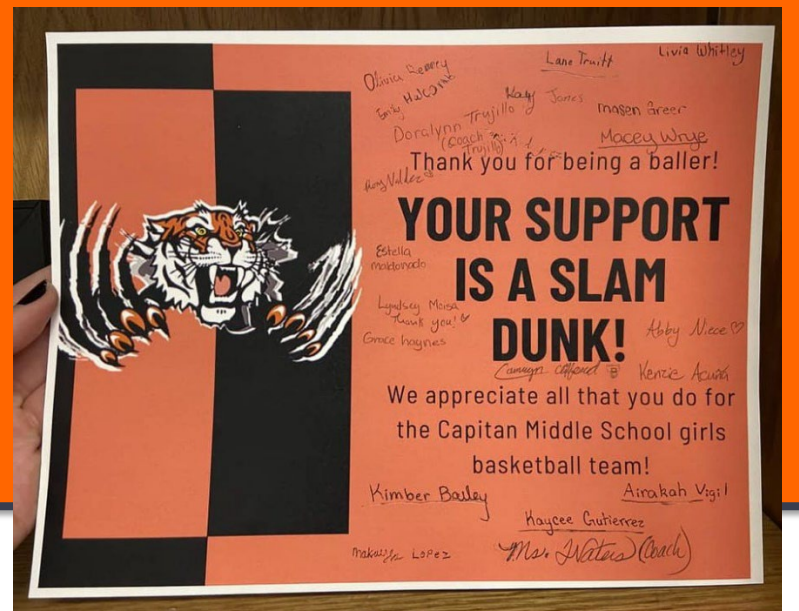 Livia Whitley
Lane Truitt
Olivia
Emily
Kay Jones
masen Greer
Doralynn Trujillo
(Coach
Trujillo)
Macey Wrye
Thank you for being a baller!
Roxy Valdez
YOUR SUPPORT
IS A SLAM
DUNK!
Estella
maldonado
Lyndsey Meisa
Thank you!
Grace haynes
Abby Niece
Camryn
Kenzie Acuña
We appreciate all that you do for
the Capitan Middle School girls
basketball team!
Kimber Bailey
Airakah Vigil
Kaycee Gutierrez
Lopez
Ms. Waters (Coach)